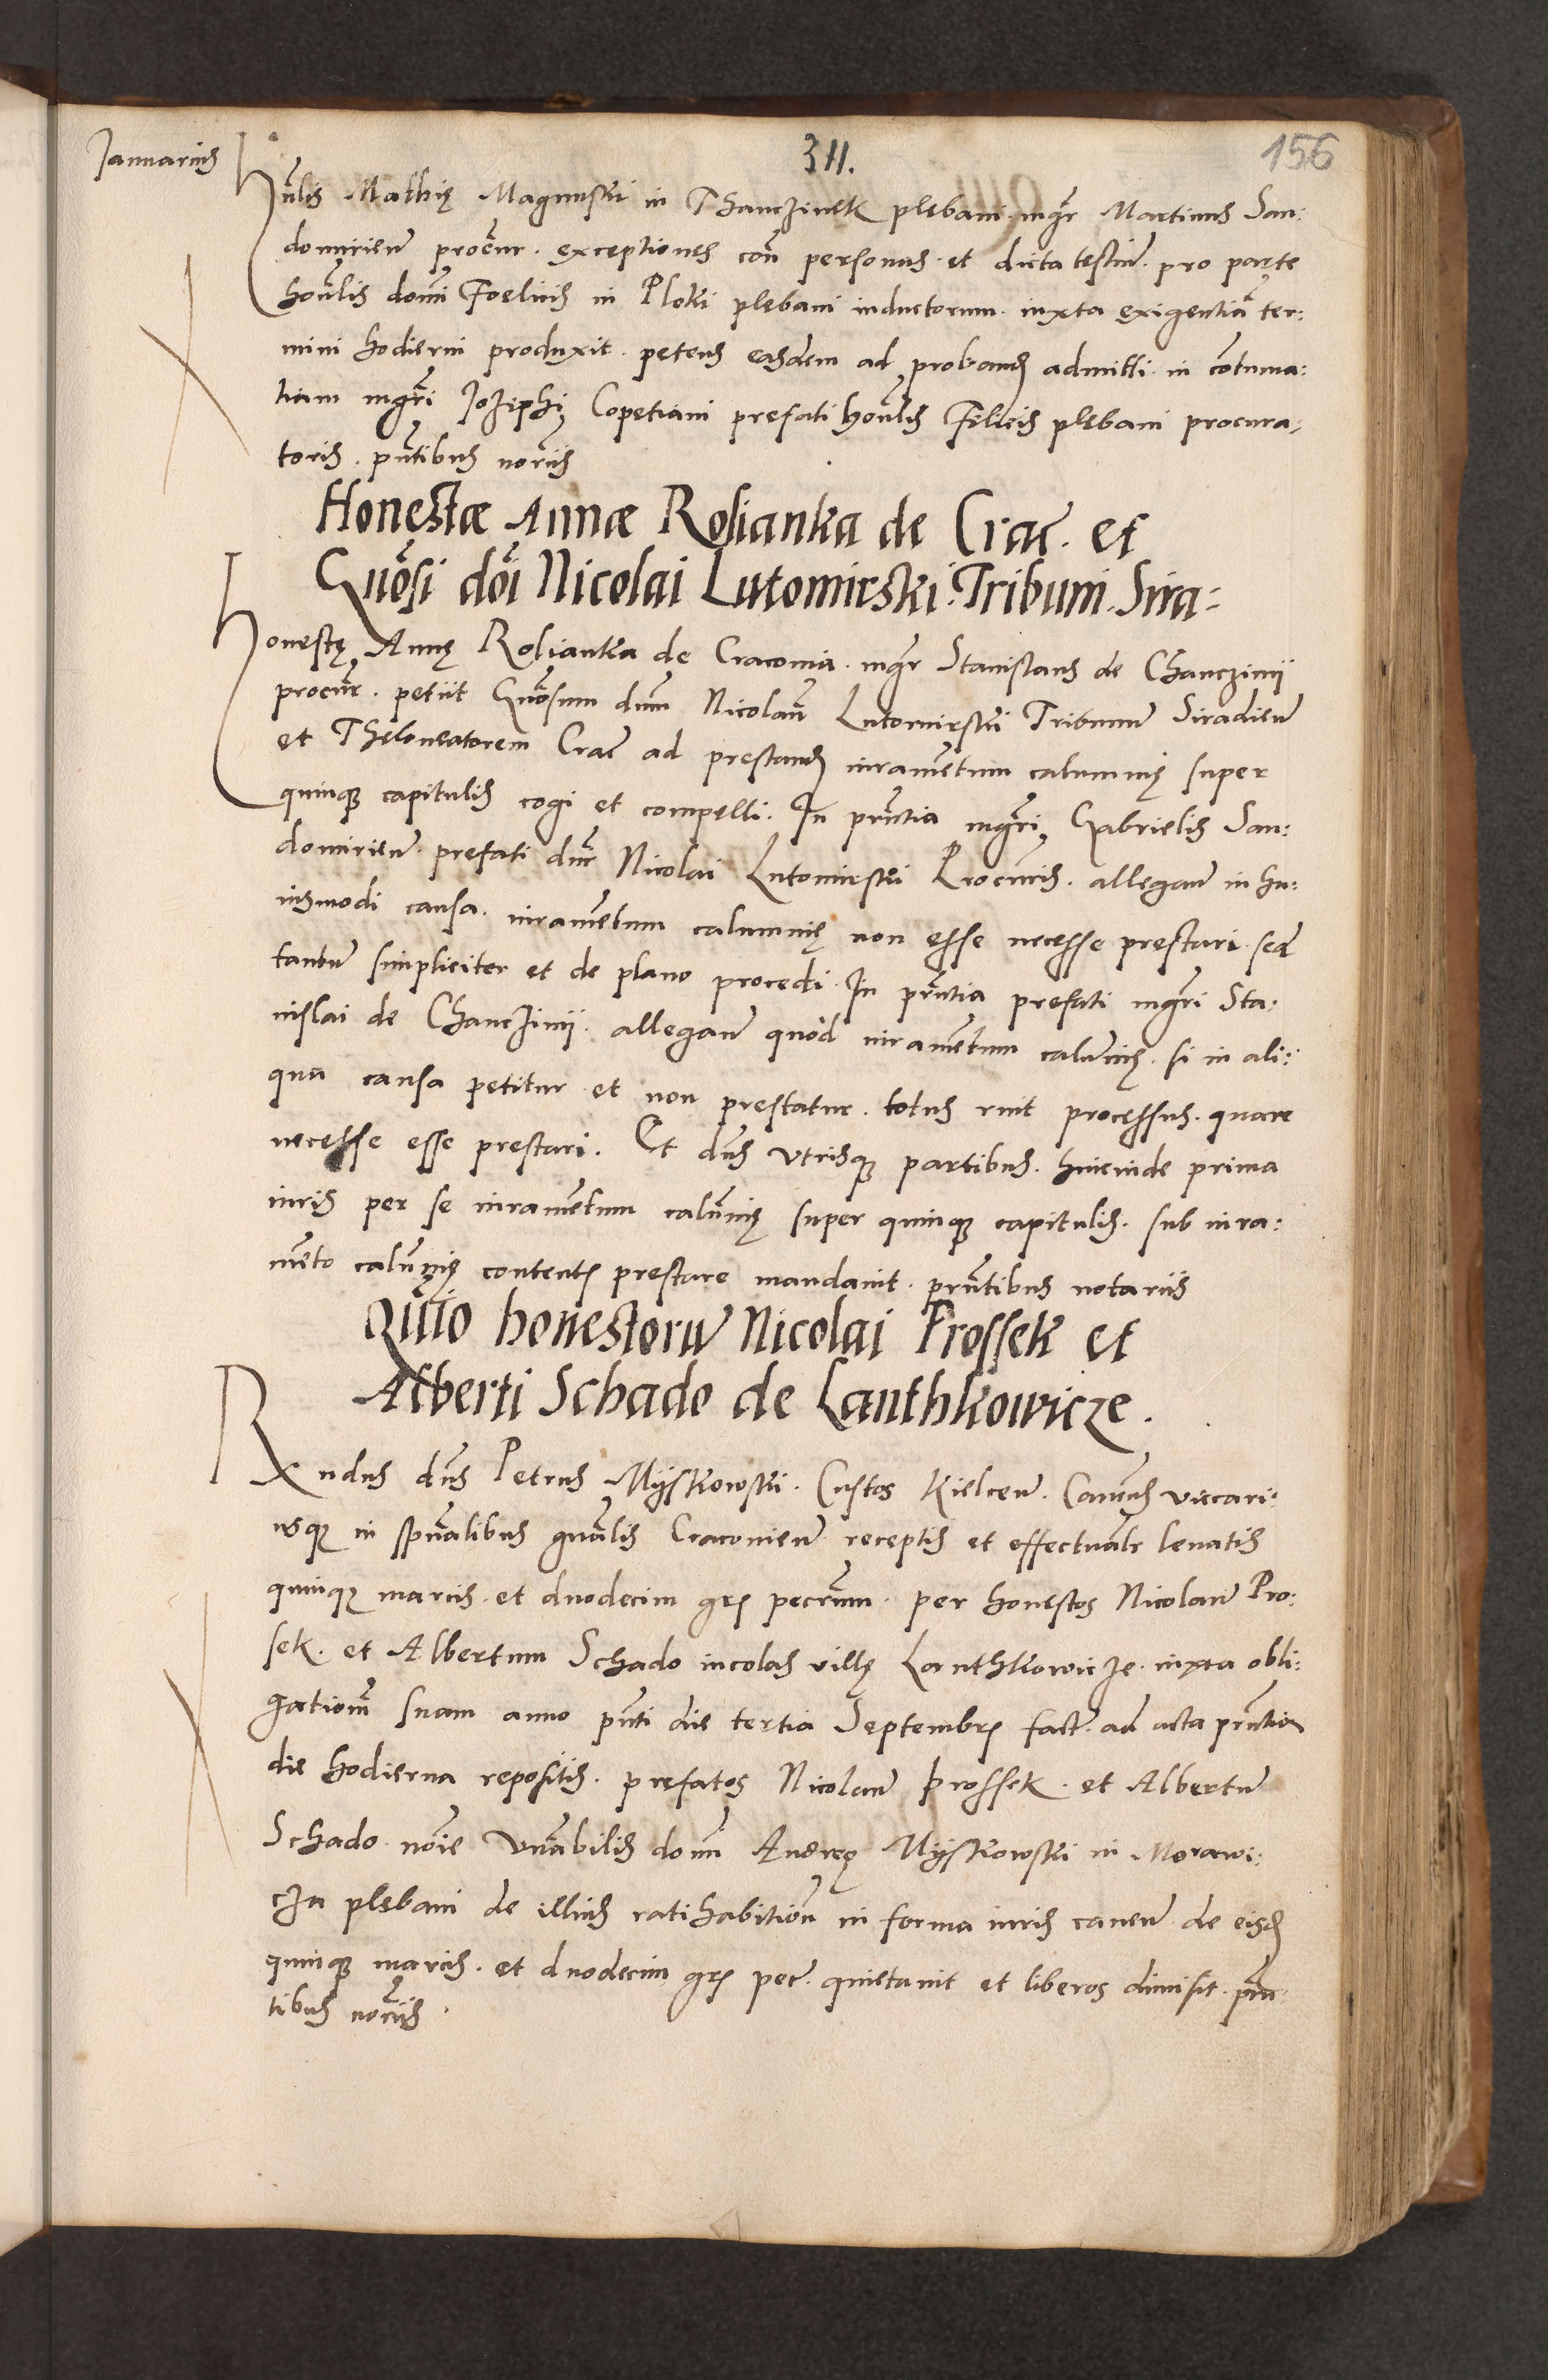 Januarius
311.
156
Hunlis Mathię Magnuski in Thanczinek plebani mgr Martinus San:
domirien procur. exceptiones con personas et dicta testium pro parte
honlis domi Foelicis in Ploki plebani inductorum iuxta exigentiā ter:
mini hodierni produxit petens easdem ad proband admitti in contuma:
tiam mgri Joziphi Copetiani prefati honlis Felicis plebani procura,
toris. pntibus notriis
Honestæ Annæ Rolianka de Crac. et
Gnosi doi Nicolai Lutomirski Tribuni Sira=
Honestę Annę Rolianka de Cracouia mgr Stanislaus de Chanczinij
procur. petiit Gnosum dnum Nicolaū Lutomirski Tribunum Siradien
et Theloneatorem Crac ad prestand iuramentum calumnię super
quinque capitulis cogi et compelli. In prntia mgri Gabrielis San:
domirien prefati dni Nicolai Lutomirski Procuris. allegan in hu:
iusmodi causa iuramentum calumnię non esse necesse prestari sed
tantum simpliciter et de plano procedi. In prntia prefati mgri Sta:
nislai de Chanczinij allegan quòd iuramentum calumnię si in ali:
qua causa petitur et non prestatur totus ruit processus. quare
necesse esse prestari. Et dnus vtrisque partibus. hincinde prima
iuris per se iuramentum calumnię super quinque capitulis. sub iura:
mento calumnię contentis prestare mandauit. prntibus notariis
Quito honestorum Nicolai Prossek et
Alberti Schado de Lanthkowicze.
Rxndus dnus Petrus Myskowski. Custos Kielcen. Canonus viccari:
usque in spualibus gnalis Cracouien receptis et effectualr leuatis
quinque marcis. et duodecim gris pecrum per honestos Nicolaum Pro:
sek. et Albertum Schado incolas villę Lanthkowicze iuxta obli:
gationē suam anno pnti die tertia Septembris fact. ad acta prntia
die hodierna repositis. prefatos Nicolaum Prossek. et Albertum
Schado noie Vnabilis domi Andreę Myskowski in Morawi:
cza plebani de illius ratihabitiōn in forma iuris cauen de eisd
quinque marcis. et duodecim gris pec. quietauit et liberos dimisit prn
tibus notriis.